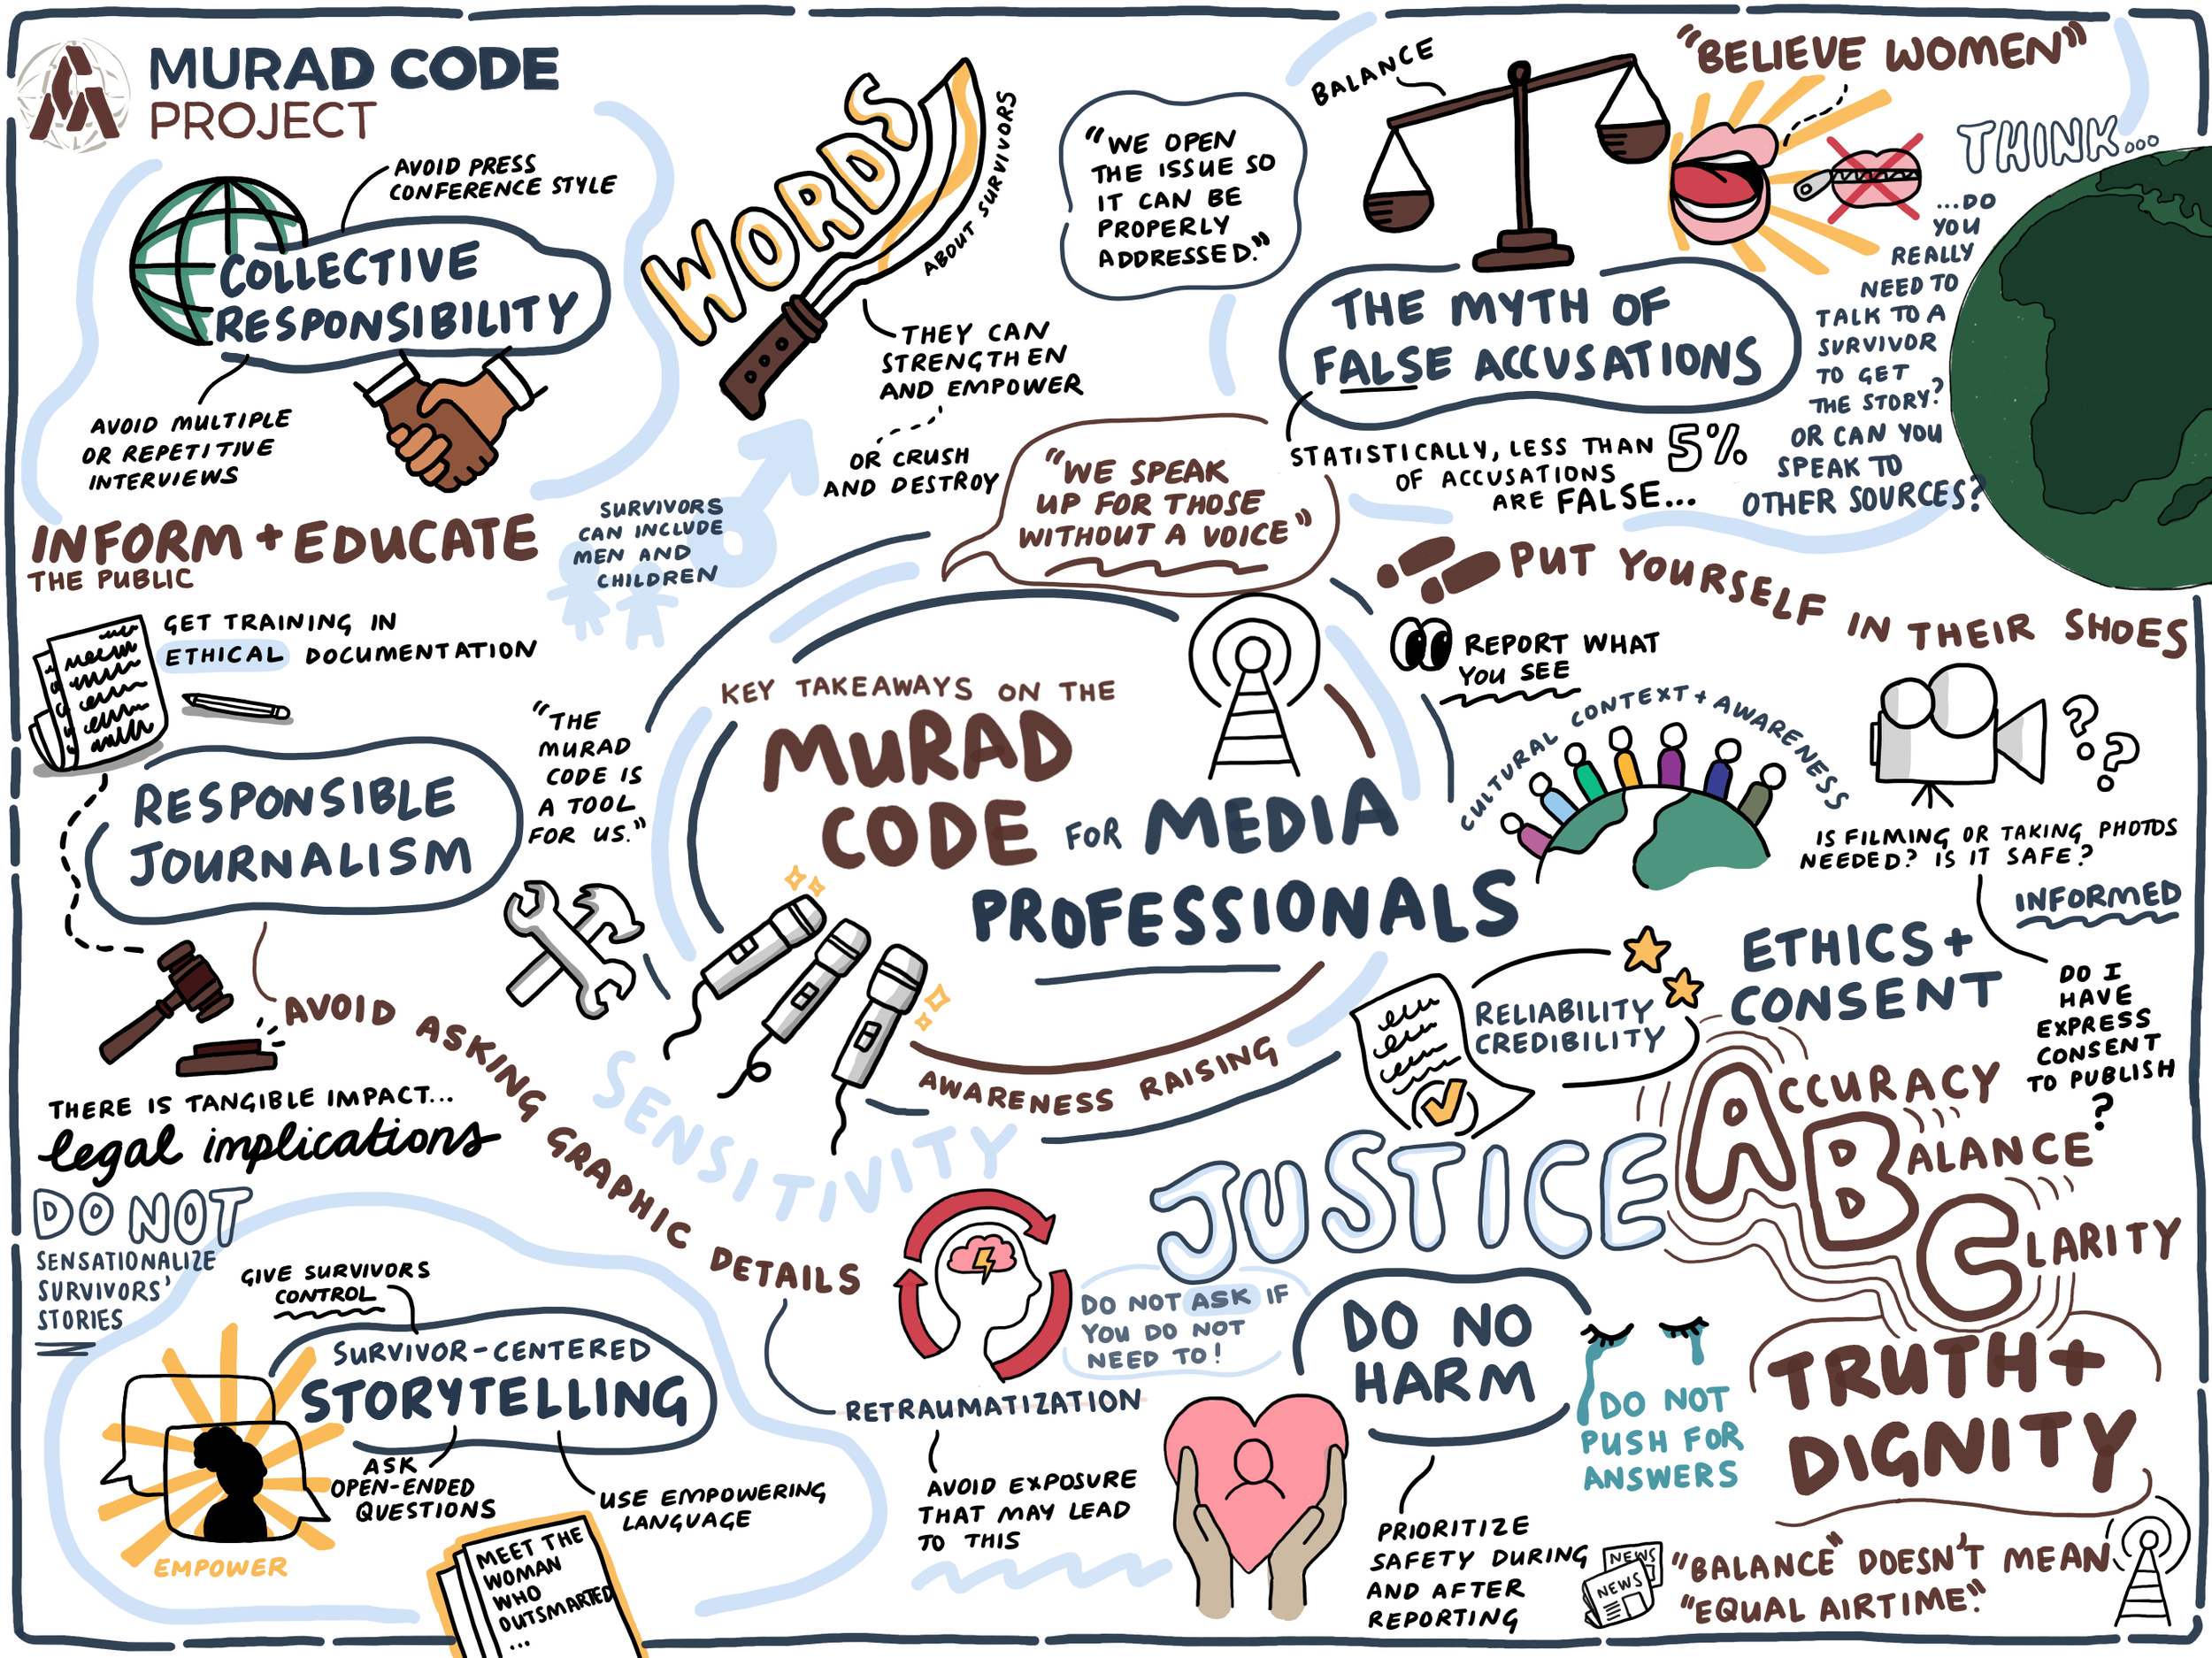 MURAD CODE
PROJECT
AVOID PRESS
CONFERENCE STYLE
COLLECTIVE
RESPONSIBILITY
AVOID MULTIPLE
OR REPETITIVE
INTERVIEWS
WORDS
ABOUT SURVIVORS
THEY CAN
STRENGTHEN
AND EMPOWER
OR CRUSH
AND DESTROY
"WE OPEN
THE ISSUE SO
IT CAN BE
PROPERLY
ADDRESSED."
BALANCE
"BELIEVE WOMEN"
THE MYTH OF
FALSE ACCUSATIONS
STATISTICALLY, LESS THAN 5%
OF ACCUSATIONS
ARE FALSE...
THINK...
...DO
YOU
REALLY
NEED TO
TALK TO A
SURVIVOR
TO GET
THE STORY?
OR CAN YOU
SPEAK TO
OTHER SOURCES?
INFORM + EDUCATE
THE PUBLIC
SURVIVORS
CAN INCLUDE
MEN AND
CHILDREN
"WE SPEAK
UP FOR THOSE
WITHOUT A VOICE"
PUT YOURSELF IN THEIR SHOES
REPORT WHAT
YOU SEE
GET TRAINING IN
ETHICAL DOCUMENTATION
RESPONSIBLE
JOURNALISM
"THE
MURAD
CODE IS
A TOOL
FOR US."
KEY TAKEAWAYS ON THE
MURAD
CODE FOR MEDIA
PROFESSIONALS
CULTURAL CONTEXT + AWARENESS
??
IS FILMING OR TAKING PHOTOS
NEEDED? IS IT SAFE?
INFORMED
ETHICS +
CONSENT
DO I
HAVE
EXPRESS
CONSENT
TO PUBLISH
?
RELIABILITY
CREDIBILITY
AWARENESS RAISING
SENSITIVITY
AVOID ASKING GRAPHIC DETAILS
THERE IS TANGIBLE IMPACT...
legal implications
DO NOT
SENSATIONALIZE
SURVIVORS'
STORIES
GIVE SURVIVORS
CONTROL
SURVIVOR-CENTERED
STORYTELLING
ASK
OPEN-ENDED
QUESTIONS
USE EMPOWERING
LANGUAGE
EMPOWER
MEET THE
WOMAN
WHO
OUTSMARTED
...
RETRAUMATIZATION
AVOID EXPOSURE
THAT MAY LEAD
TO THIS
JUSTICE
DO NOT ASK IF
YOU DO NOT
NEED TO!
DO NO
HARM
PRIORITIZE
SAFETY DURING
AND AFTER
REPORTING
DO NOT
PUSH FOR
ANSWERS
ACCURACY
BALANCE
CLARITY
TRUTH +
DIGNITY
NEWS
NEWS
"BALANCE" DOESN'T MEAN
"EQUAL AIRTIME."